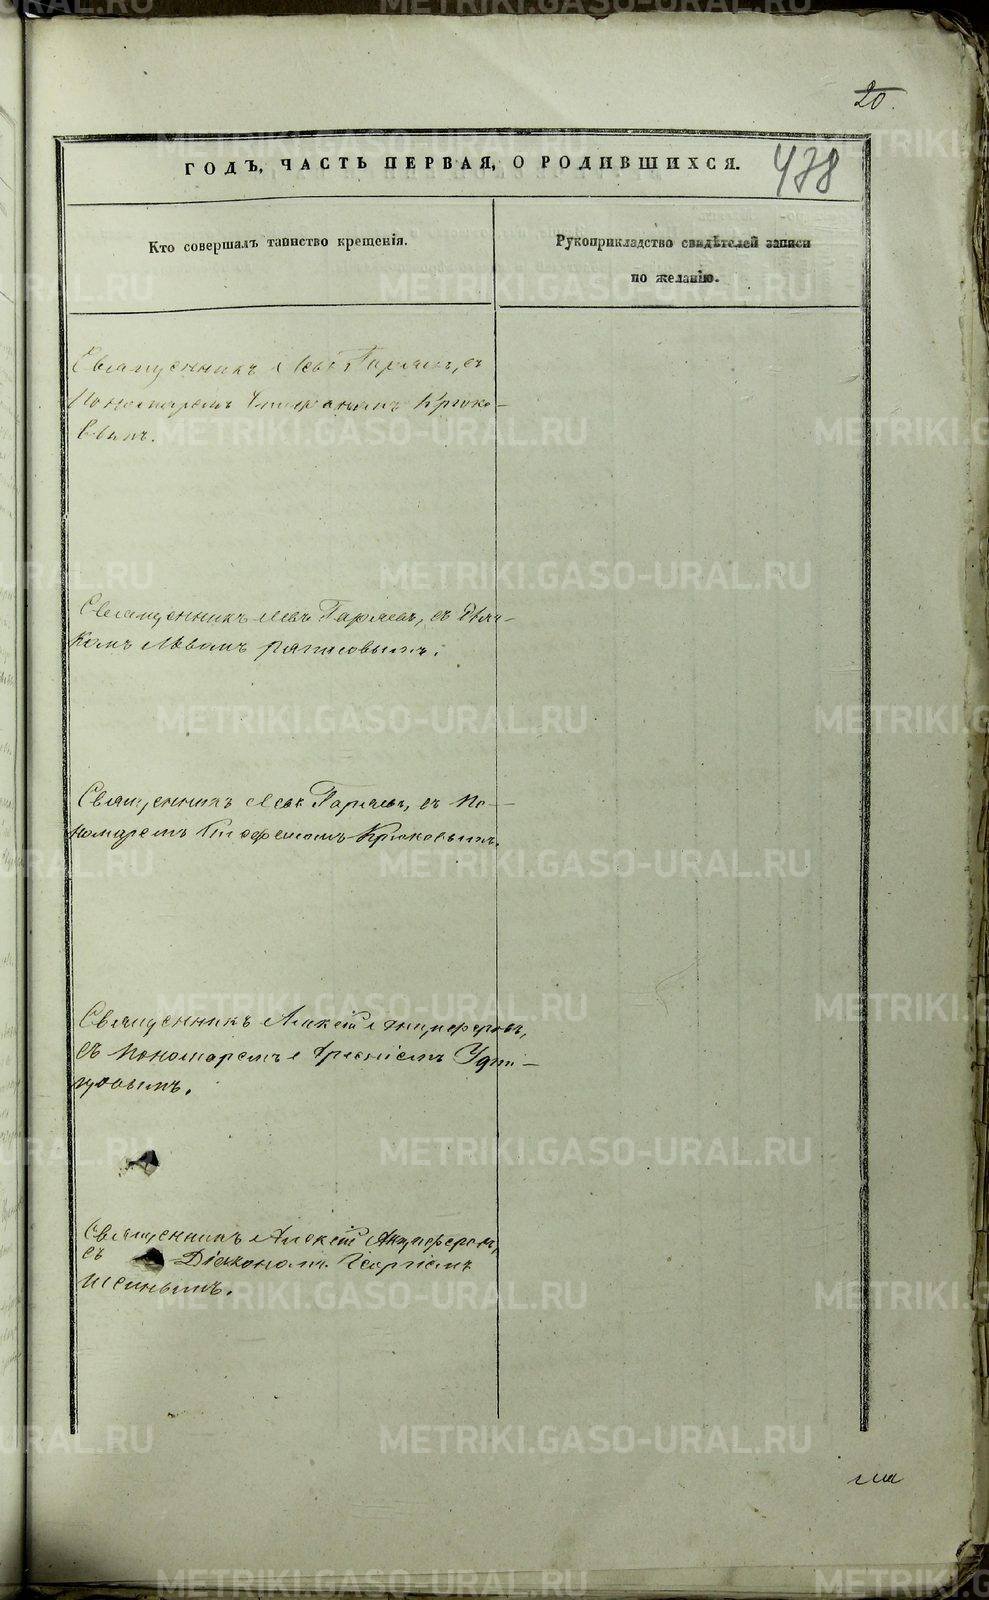 20.
ГОДЪ, ЧАСТЬ ПЕРВАЯ, О РОДИВШИХСЯ.
478
Кто совершалъ таинство крещенія.
Рукоприкладство свидѣтелей записи
по желанію.
Священникъ Левъ Гаряевъ, съ
Пономаремъ Крюко-
вымъ.
Священникъ Левъ Гаряевъ, съ Дья-
комъ Львомъ
Священникъ Левъ Гаряевъ, съ По-
номаремъ Крюковымъ.
Священникъ Алексій Анциферовъ,
съ Пономаремъ Арсеніемъ Удин-
цовымъ.
Священникъ Алексій Анциферовъ,
съ Діакономъ Георгіемъ
METRIKI.GASO-URAL.RU